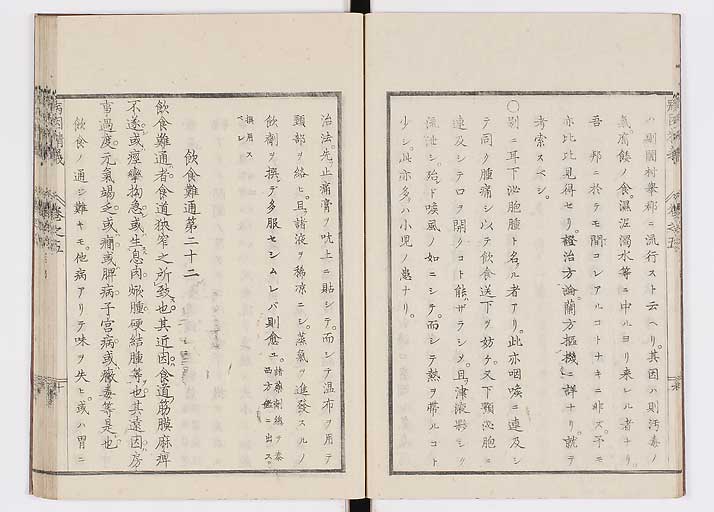 ハ則国村挙郷ニ流行スト云ヘリ。其因ハ則汚毒ノ
氣。腐餒ノ食。濕溼濁水等ニ中ルヨリ来レル者ナリ。
吾 邦ニ於テモ間コレアルコトナキニ非ズ。予モ
亦比比見得セリ。證治方論。蘭方樞機ニ詳ナリ。就テ
考索スベシ。
〇別ニ耳下泌胞腫ト名ル者アリ。此亦咽喉ニ連及シ
テ同ク腫痛シ。以テ飲食送下ヲ妨ゲ。又下顎泌胞ニ
連及シテ口ヲ開クコト能ハザラシメ。且津液夥シク
流泄シ。殆ド喉風ノ如ニシテ。而シテ熱ヲ帯ルコト
少シ。此亦多クハ小児ノ患ナリ。
治法。先止痛膏ヲ吭上ニ貼シテ。而シテ温布ヲ用テ
頸部ヲ絡ヒ。且諸液ヲ稀凉ニシ。蒸氣ヲ進發スルノ
飲劑ヲ撰デ多服セシムレバ則愈ユ。諸藥劑總テ泰西方鑑ニ出ス。
撰用スベシ
飲食難通第二十二
飲食難通者。食道狹窄之所致也。其近因。食道筋膜麻痺
不遂。或痙攣拘急。或生息肉。焮腫硬結腫等也。其遠因。房
事過度。元氣竭乏。或癇。或脾病子宮病。或黴毒等是也
飲食ノ通ジ難キモ。他病アリテ味ヲ失ヒ。或ハ胃ニ
病因精義
卷之五